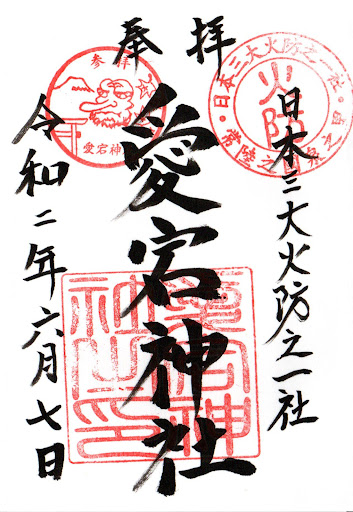 奉拝
日本三大火防之一社
愛宕神社
令和二年六月七日
参拝
愛宕神
日本三大火防之一社
火防
愛宕神社之印